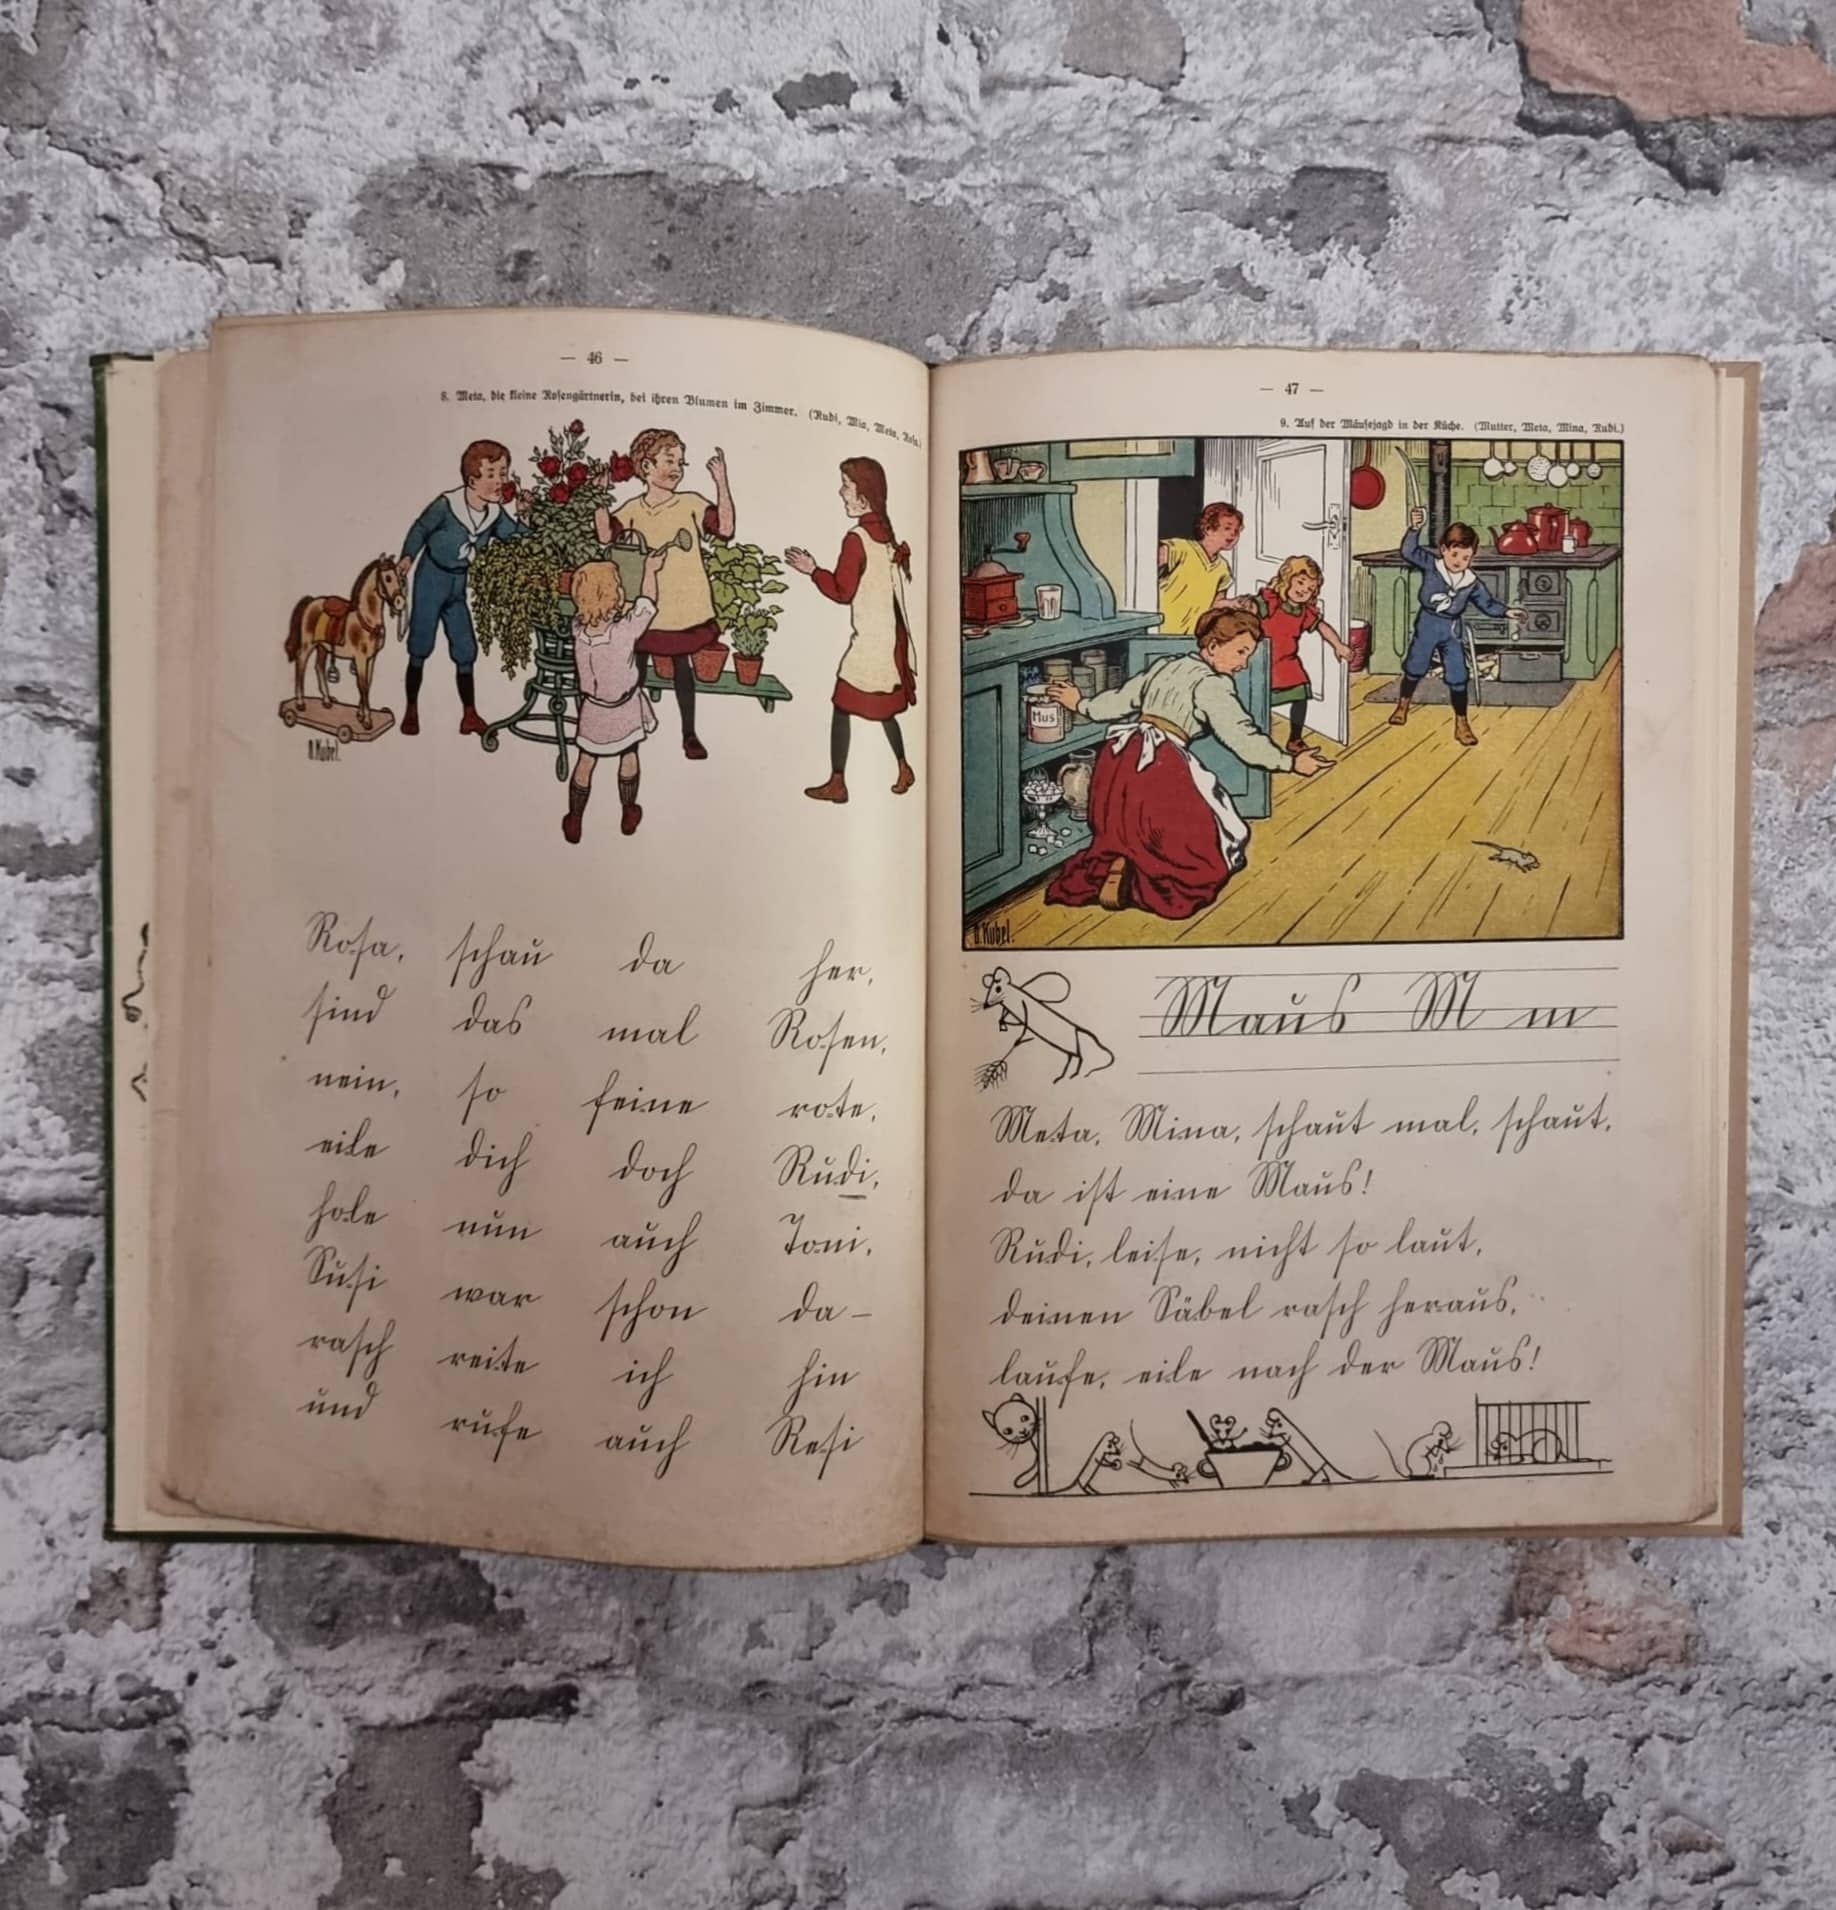 — 46 —
8. Meta, die kleine Rosengärtnerin, bei ihren Blumen im Zimmer. (Rudi, Mia, Meta, Rosa.)
O. Kubel.
Rosa, schau da her,
sind das mal Rosen,
nein, so feine rote,
eile dich doch Rudi,
hole nun auch Toni,
Susi war schon da –
rasch reite ich hin
und rufe auch Resi
— 47 —
9. Auf der Mäusejagd in der Küche. (Mutter, Meta, Mina, Rudi.)
Mus
O. Kubel.
Maus M m
Meta, Mina, schaut mal, schaut,
da ist eine Maus!
Rudi, leise, nicht so laut,
deinen Säbel rasch heraus,
laufe, eile nach der Maus!